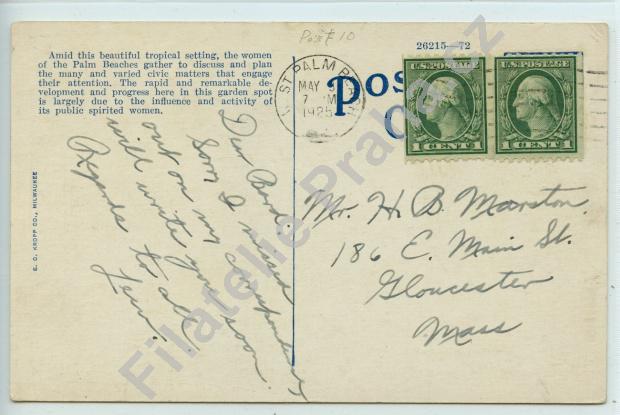 Post 10
26215—72
Amid this beautiful tropical setting, the women
of the Palm Beaches gather to discuss and plan
the many and varied civic matters that engage
their attention. The rapid and remarkable de-
velopment and progress here in this garden spot
is largely due to the influence and activity of
its public spirited women.
W. ST PALM BEACH
MAY 9
7 M
1925
FLA.
POS
C
U.S. POSTAGE
1 CENT 1
U.S. POSTAGE
1 CENT 1
E. C. KROPP CO., MILWAUKEE
Dear
Sorry I missed
out on my correspondence
will write you soon.
Regards to all
Mr. H. B. Marston.
186 E. Main St.
Gloucester
Mass
Filatelie Praha.cz